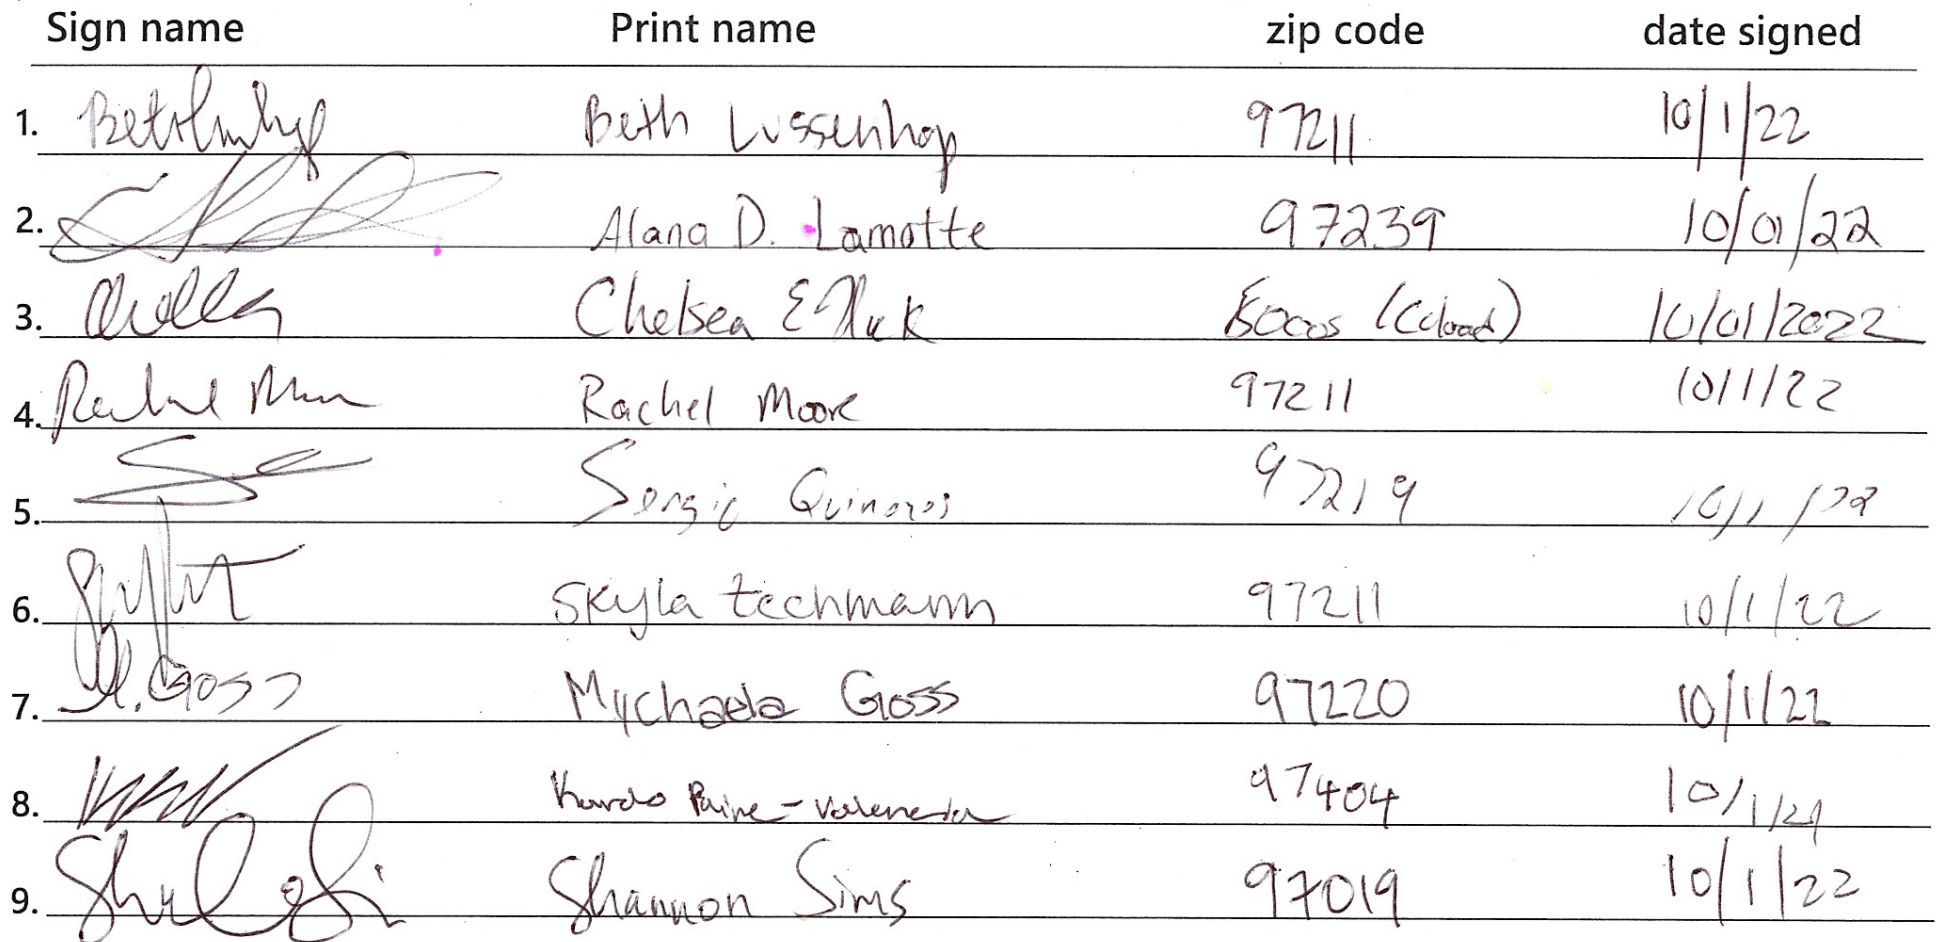 Sign name Print name zip code date signed
1. Beth Lussenhop 97211 10/1/22
2. Alana D. Lamotte 97239 10/01/22
3. Chelsea E 10/01/2022
4. Rachel Moore 97211 10/1/22
5. Sergio Quinones 97219 10/1/22
6. Skyla techmann 97211 10/1/22
7. M. Goss Mychaela Goss 97220 10/1/22
8. Paine-Valenzuela 97404
9. Shannon Sims 97019 10/1/22